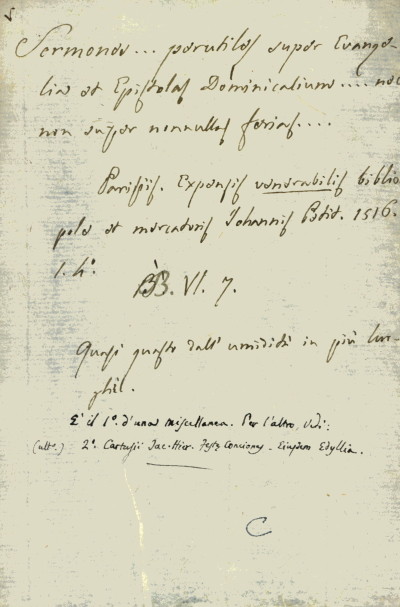 Sermones... perutiles super Evange-
lia et Epistolas Dominicalium.... nec
non super nonnullas ferias....
Parisiis. Expensis venerabilis biblio
pole et mercatoris Johannis Petit. 1516.
1. 4°.
BB. VI. 7.
Quasi guasto dall' umidità in più luo-
ghi.
È il 1°. d'una miscellanea. Per l'altro, Vedi:
2°. Cartusii Jac. Hier. Conciones - Ejusdem Edyllia.
C